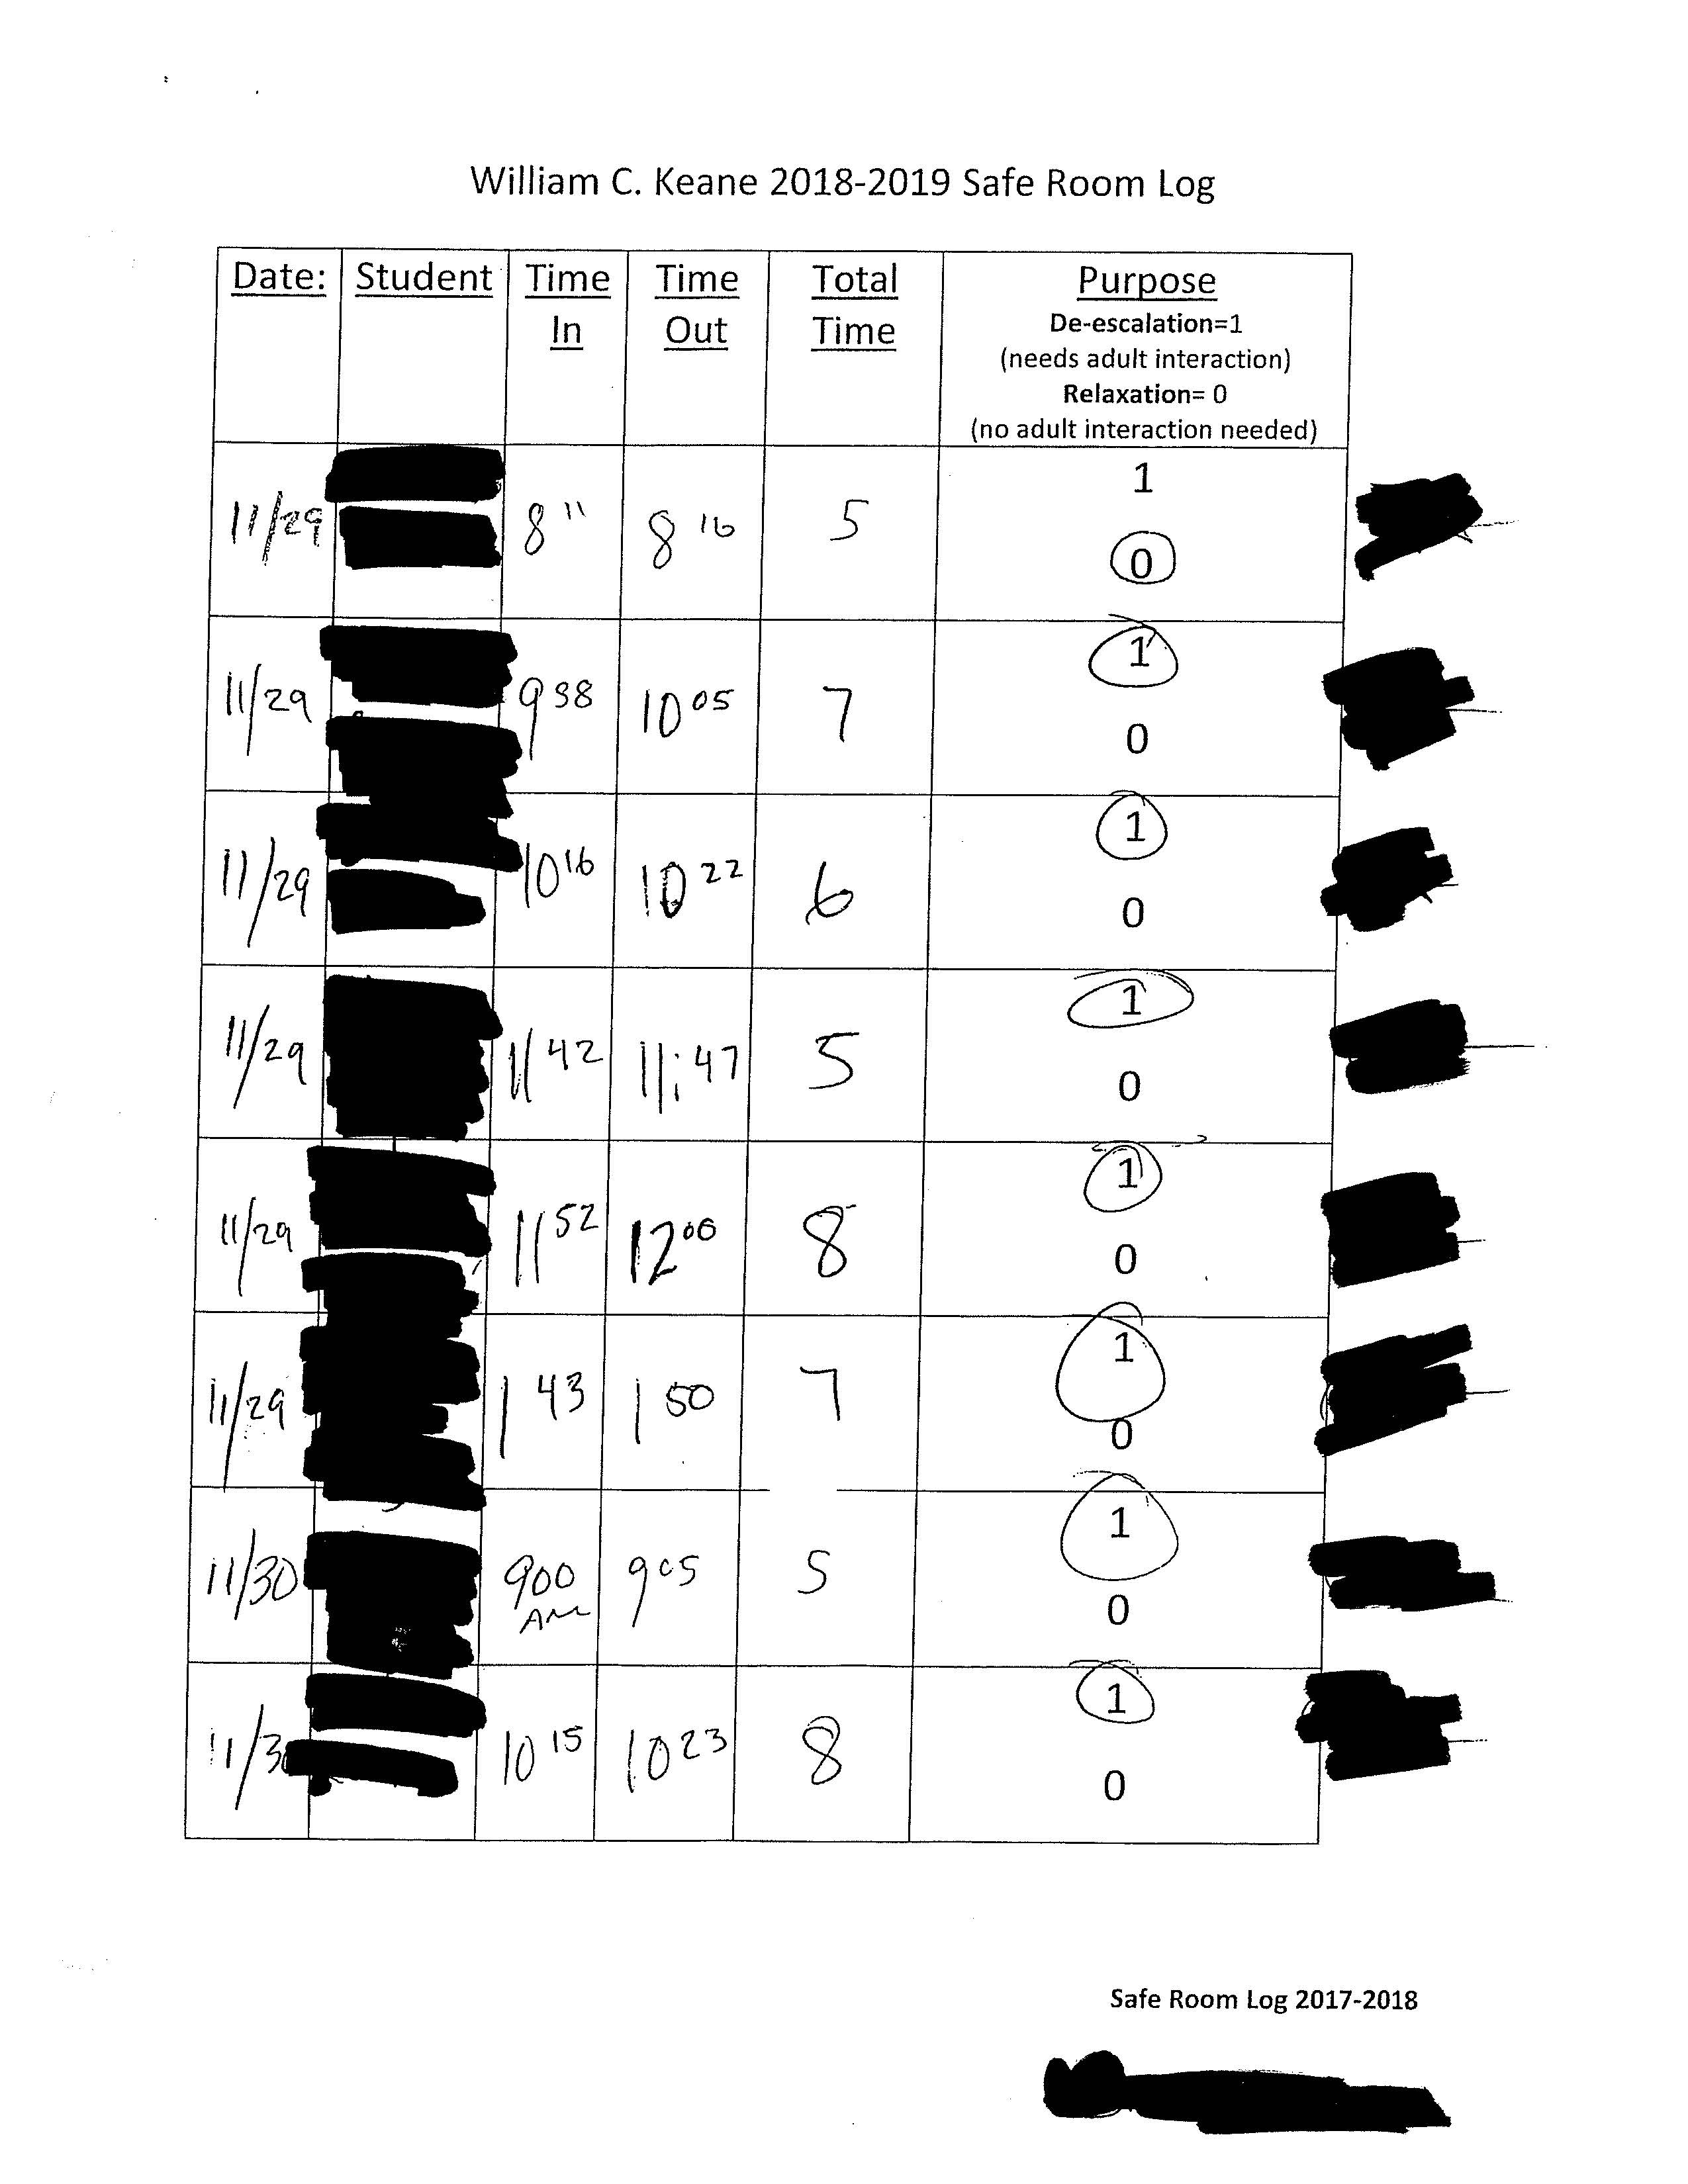 William C. Keane 2018-2019 Safe Room Log
Date: Student Time In Time Out Total Time Purpose
De-escalation=1
(needs adult interaction)
Relaxation= 0
(no adult interaction needed)
11/29 8 11 8 16 5 1 0
11/29 9 58 10 05 7 1 0
11/29 10 16 10 22 6 1 0
11/29 11 42 11:47 5 1 0
11/29 11 52 12 00 8 1 0
11/29 1 43 1 50 7 1 0
11/30 900 AM 9 05 5 1 0
11/30 10 15 10 23 8 1 0
Safe Room Log 2017-2018